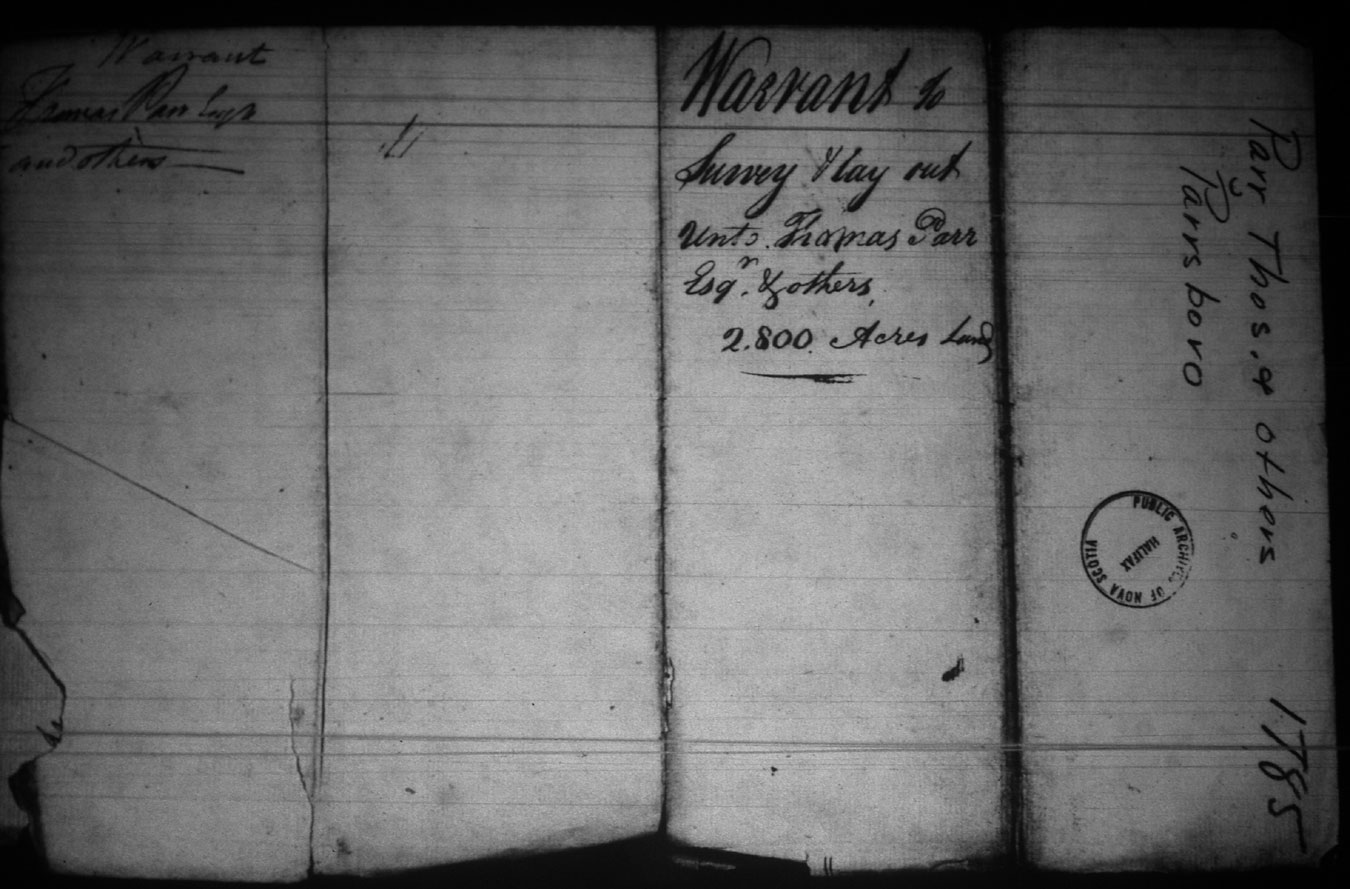 Warrant
Thomas Parr Esqr
and others
Warrant to
Survey & lay out
Unto Thomas Parr
Esqr. & others,
2.800. Acres Land
Parr Thos. & others 1785
Parrsboro
PUBLIC ARCHIVES OF NOVA SCOTIA
HALIFAX